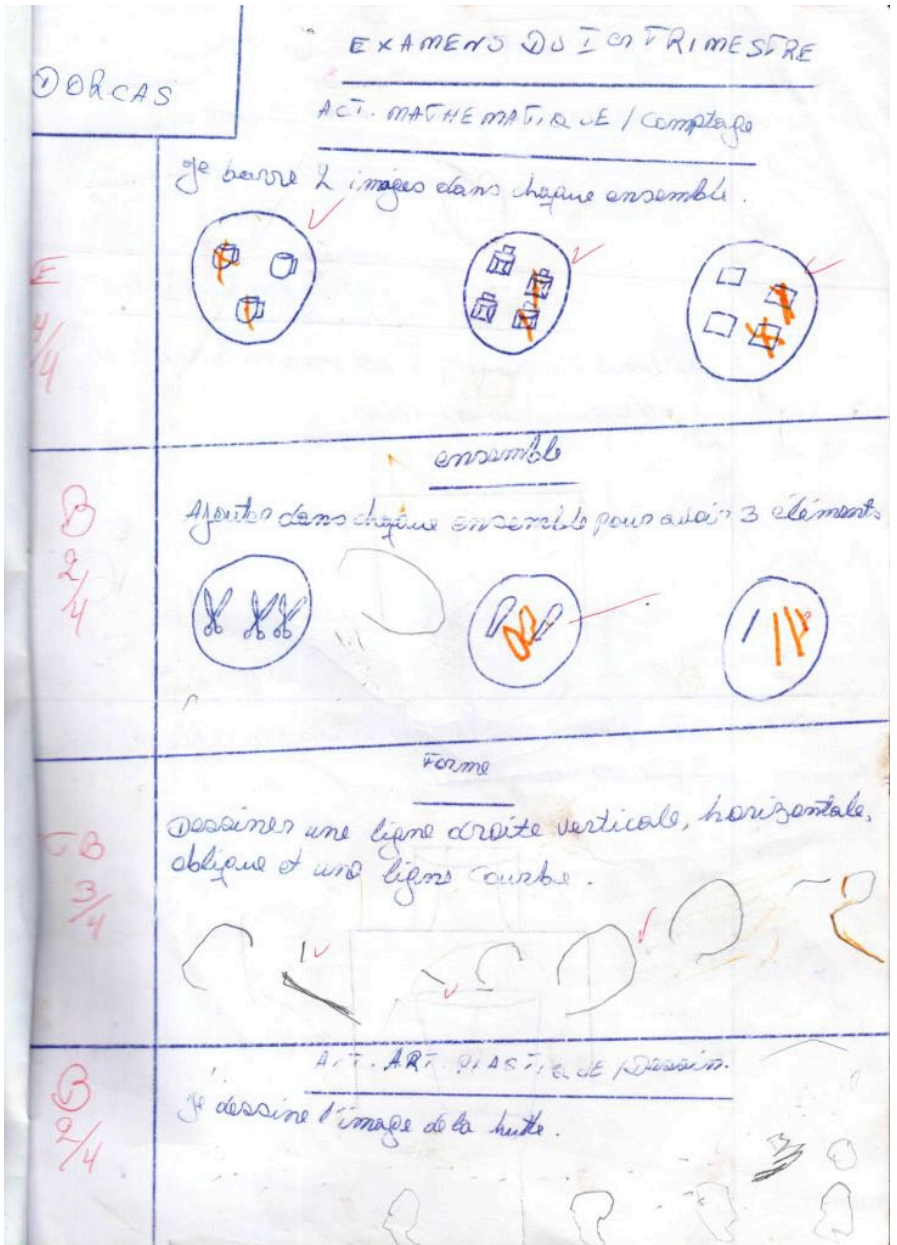 DORCAS
EXAMENS DU I er TRIMESTRE
ACT. MATHEMATIQUE / Comptage
Je barre 2 images dans chaque ensemble.
E
4/4
ensemble
Ajouter dans chaque ensemble pour avoir 3 éléments
B
2/4
Forme
Dessiner une ligne droite verticale, horizontale,
oblique et une ligne courbe.
TB
3/4
ACT. ART PLASTIQUE / Dessin.
Je dessine l'image de la hutte.
B
2/4